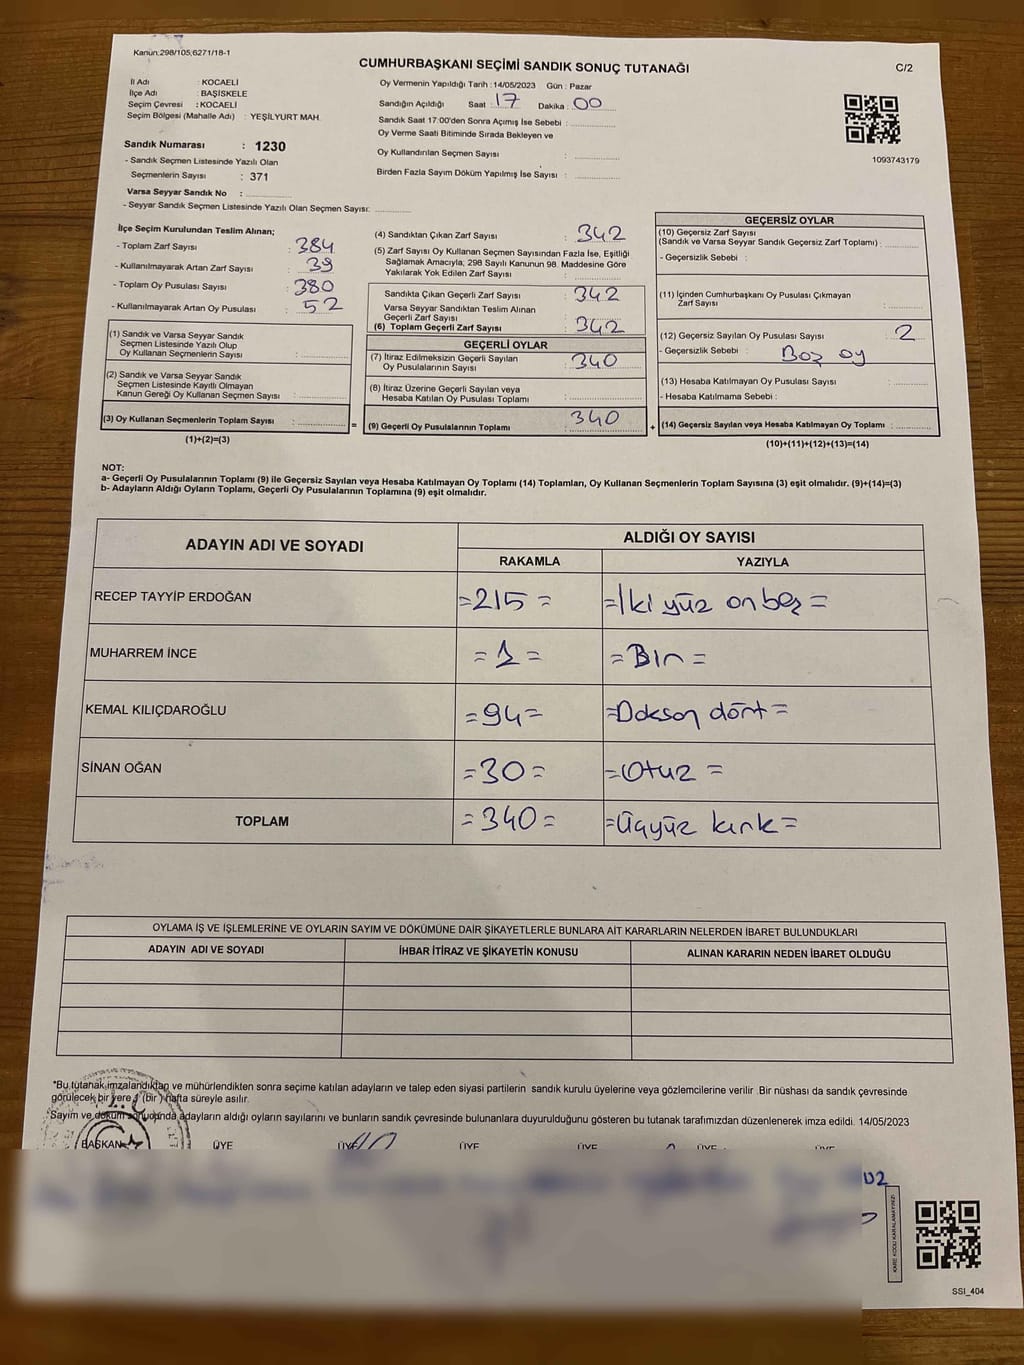 Kanun:298/105,6271/18-1
CUMHURBAŞKANI SEÇİMİ SANDIK SONUÇ TUTANAĞI
C/2
İl Adı : KOCAELİ
İlçe Adı : BAŞİSKELE
Seçim Çevresi : KOCAELİ
Seçim Bölgesi (Mahalle Adı) : YEŞİLYURT MAH.
Sandık Numarası : 1230
- Sandık Seçmen Listesinde Yazılı Olan
Seçmenlerin Sayısı : 371
Varsa Seyyar Sandık No :
- Seyyar Sandık Seçmen Listesinde Yazılı Olan Seçmen Sayısı:
Oy Vermenin Yapıldığı Tarih : 14/05/2023 Gün : Pazar
Sandığın Açıldığı Saat : 17 Dakika : 00
Sandık Saat 17:00'den Sonra Açımış İse Sebebi :
Oy Verme Saati Bitiminde Sırada Bekleyen ve
Oy Kullandırılan Seçmen Sayısı :
Birden Fazla Sayım Döküm Yapılmış İse Sayısı :
1093743179
İlçe Seçim Kurulundan Teslim Alınan;
- Toplam Zarf Sayısı : 384
- Kullanılmayarak Artan Zarf Sayısı : 39
- Toplam Oy Pusulası Sayısı : 380
- Kullanılmayarak Artan Oy Pusulası : 52
(1) Sandık ve Varsa Seyyar Sandık
Seçmen Listesinde Yazılı Olup
Oy Kullanan Seçmenlerin Sayısı :
(2) Sandık ve Varsa Seyyar Sandık
Seçmen Listesinde Kayıtlı Olmayan
Kanun Gereği Oy Kullanan Seçmen Sayısı :
(3) Oy Kullanan Seçmenlerin Toplam Sayısı :
(1)+(2)=(3)
=
(4) Sandıktan Çıkan Zarf Sayısı : 342
(5) Zarf Sayısı Oy Kullanan Seçmen Sayısından Fazla İse, Eşitliği
Sağlamak Amacıyla; 298 Sayılı Kanunun 98. Maddesine Göre
Yakılarak Yok Edilen Zarf Sayısı :
Sandıkta Çıkan Geçerli Zarf Sayısı : 342
Varsa Seyyar Sandıktan Teslim Alınan
Geçerli Zarf Sayısı :
(6) Toplam Geçerli Zarf Sayısı : 342
GEÇERLİ OYLAR
(7) İtiraz Edilmeksizin Geçerli Sayılan
Oy Pusulalarının Sayısı : 340
(8) İtiraz Üzerine Geçerli Sayılan veya
Hesaba Katılan Oy Pusulası Toplamı :
(9) Geçerli Oy Pusulalarının Toplamı : 340
+
GEÇERSİZ OYLAR
(10) Geçersiz Zarf Sayısı
(Sandık ve Varsa Seyyar Sandık Geçersiz Zarf Toplamı) :
- Geçersizlik Sebebi :
(11) İçinden Cumhurbaşkanı Oy Pusulası Çıkmayan
Zarf Sayısı :
(12) Geçersiz Sayılan Oy Pusulası Sayısı : 2
- Geçersizlik Sebebi : Boş oy
(13) Hesaba Katılmayan Oy Pusulası Sayısı :
- Hesaba Katılmama Sebebi :
(14) Geçersiz Sayılan veya Hesaba Katılmayan Oy Toplamı :
(10)+(11)+(12)+(13)=(14)
NOT:
a- Geçerli Oy Pusulalarının Toplamı (9) ile Geçersiz Sayılan veya Hesaba Katılmayan Oy Toplamı (14) Toplamları, Oy Kullanan Seçmenlerin Toplam Sayısına (3) eşit olmalıdır. (9)+(14)=(3)
b- Adayların Aldığı Oyların Toplamı, Geçerli Oy Pusulalarının Toplamına (9) eşit olmalıdır.
ADAYIN ADI VE SOYADI ALDIĞI OY SAYISI
RAKAMLA YAZIYLA
RECEP TAYYİP ERDOĞAN =215= =İki yüz onbeş=
MUHARREM İNCE =1= =Bir=
KEMAL KILIÇDAROĞLU =94= =Doksan dört=
SİNAN OĞAN =30= =Otuz=
TOPLAM =340= =Üçyüz kırk=
OYLAMA İŞ VE İŞLEMLERİNE VE OYLARIN SAYIM VE DÖKÜMÜNE DAİR ŞİKAYETLERLE BUNLARA AİT KARARLARIN NELERDEN İBARET BULUNDUKLARI
ADAYIN ADI VE SOYADI İHBAR İTİRAZ VE ŞİKAYETİN KONUSU ALINAN KARARIN NEDEN İBARET OLDUĞU
*Bu tutanak imzalandıktan ve mühürlendikten sonra seçime katılan adayların ve talep eden siyasi partilerin sandık kurulu üyelerine veya gözlemcilerine verilir. Bir nüshası da sandık çevresinde
görülecek bir yere 1 (bir) hafta süreyle asılır.
Sayım ve döküm sonucunda adayların aldığı oyların sayılarını ve bunların sandık çevresinde bulunanlara duyurulduğunu gösteren bu tutanak tarafımızdan düzenlenerek imza edildi. 14/05/2023
BAŞKAN ÜYE ÜYE ÜYE ÜYE ÜYE ÜYE
KARE KODU KARALAMAYINIZ!
SSI_404